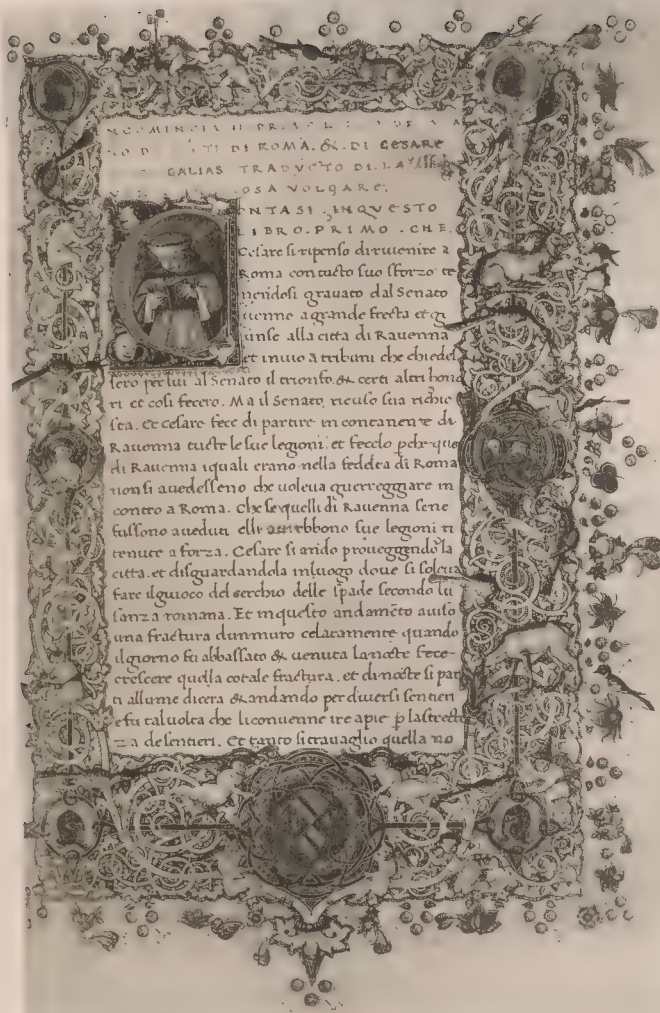 DI ROMA. &. DI CESARE
GALIAS TRADVCTO DI LA
OSA VOLGARE.
ONTASI . INQVESTO
LIBRO . PRIMO . CHE.
Cesare si ripenso diriuenire a
Roma con tucto suo sforzo te
nendosi grauato dal Senato
uenne a grande frecta et gi
unse alla citta di Rauenna
et inuio a tribuni che chiedes
sero per lui al Senato il trionfo. &. certi altri hono
ri et cosi fecero. Ma il Senato, ricuso sua richie
sta. et cesare fece di partire in contanente di
Rauenna tucte le sue legioni: et fecelo pche que
di Rauenna iquali erano nella feddera di Roma
non si auedesseno che uoleua guerreggiare in
contro a Roma. Che se quelli di Rauenna sene
fussono aueduti elli aurebbono sue legioni ri
tenute a forza. Cesare si ando proueggendo la
citta. et disguardandola inluogo doue si soleua
fare ilguoco del serchio delle spade secondo lu
sanza romana. Et in questo andamēto auiso
una fractura dunmuro celatamente quando
ilgiorno fu abbassato & uenuta lanocte fece
crescere quella cotale fractura. et dinocte si par
ti allume dicera & andando per diuersi sentieri
e fu taluolta che li conuenne ire apie p lastrecte
za desentieri. Et tanto sitrauaglio quella no